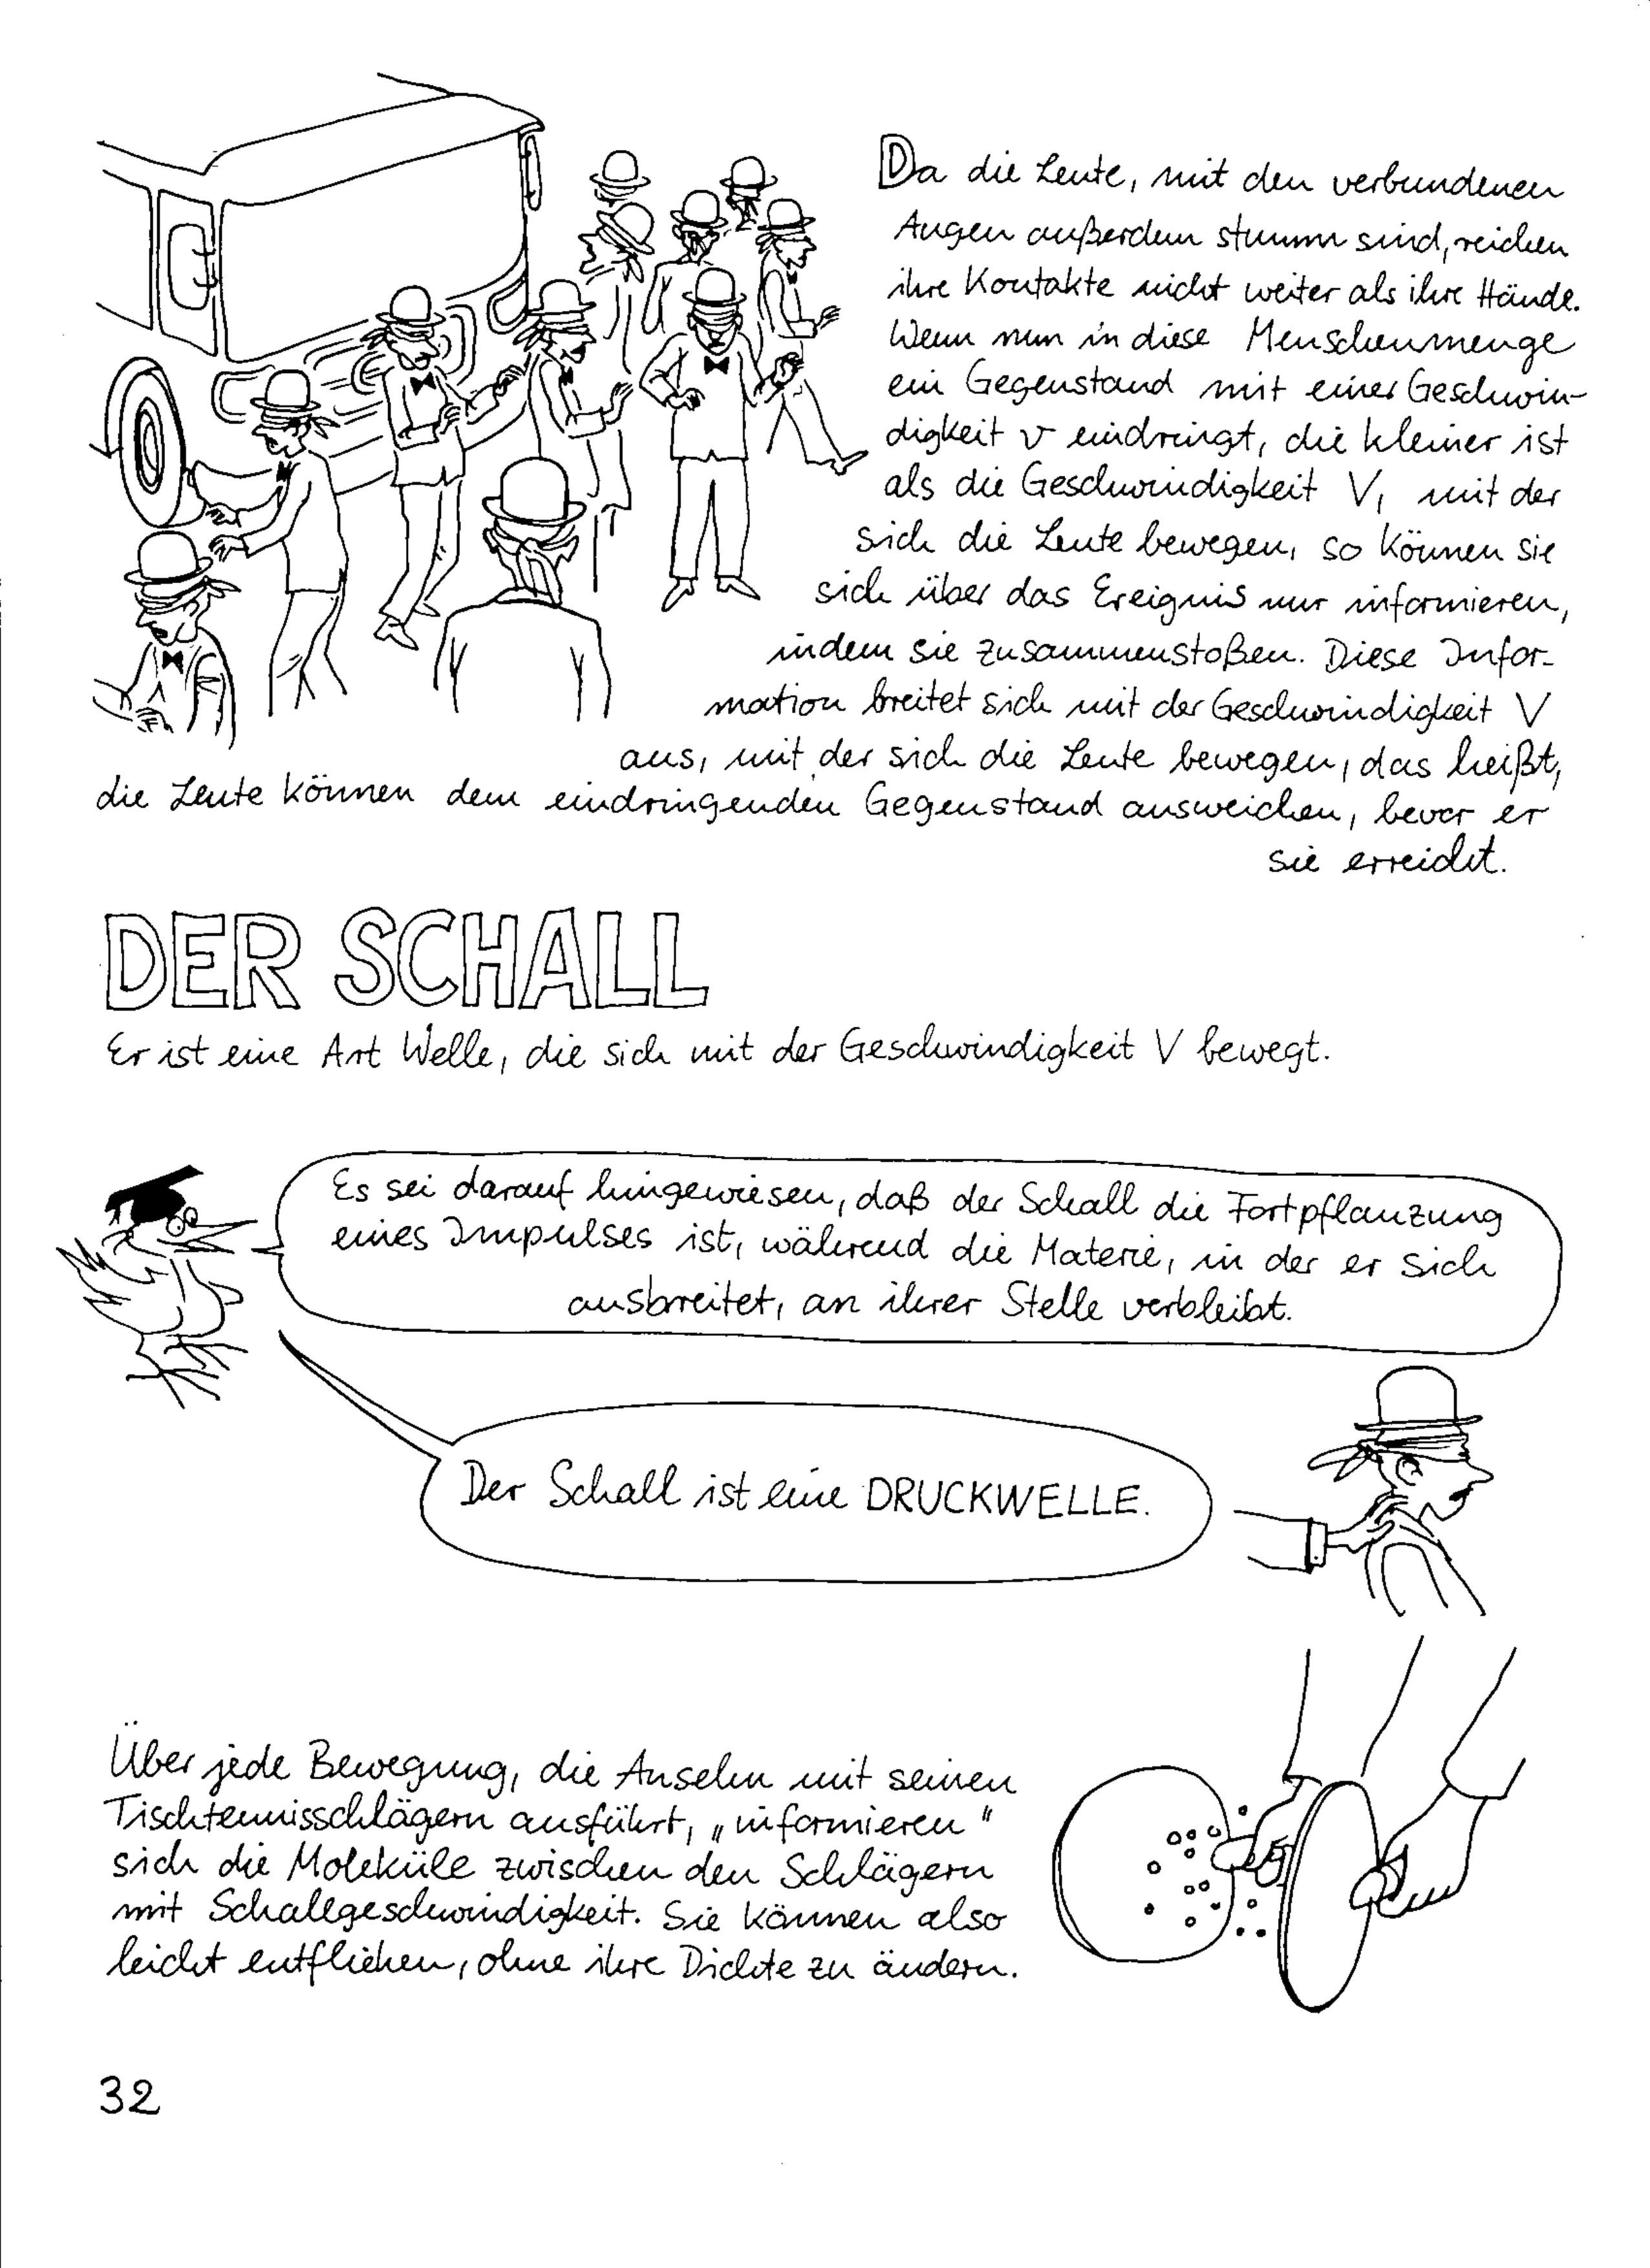 Da die Leute, mit den verbundenen
Augen außerdem stumm sind, reichen
ihre Kontakte nicht weiter als ihre Hände.
Wenn nun in diese Menschenmenge
ein Gegenstand mit einer Geschwin-
digkeit v eindringt, die kleiner ist
als die Geschwindigkeit V, mit der
sich die Leute bewegen, so können sie
sich über das Ereignis nur informieren,
indem sie zusammenstoßen. Diese Infor-
mation breitet sich mit der Geschwindigkeit V
aus, mit der sich die Leute bewegen, das heißt,
die Leute können dem eindringenden Gegenstand ausweichen, bevor er
sie erreicht.
DER SCHALL
Er ist eine Art Welle, die sich mit der Geschwindigkeit V bewegt.
Es sei darauf hingewiesen, daß der Schall die Fortpflanzung
eines Impulses ist, während die Materie, in der er sich
ausbreitet, an ihrer Stelle verbleibt.
Der Schall ist eine DRUCKWELLE.
Über jede Bewegung, die Anselm mit seinen
Tischtennisschlägern ausführt, „informieren"
sich die Moleküle zwischen den Schlägern
mit Schallgeschwindigkeit. Sie können also
leicht entfliehen, ohne ihre Dichte zu ändern.
32